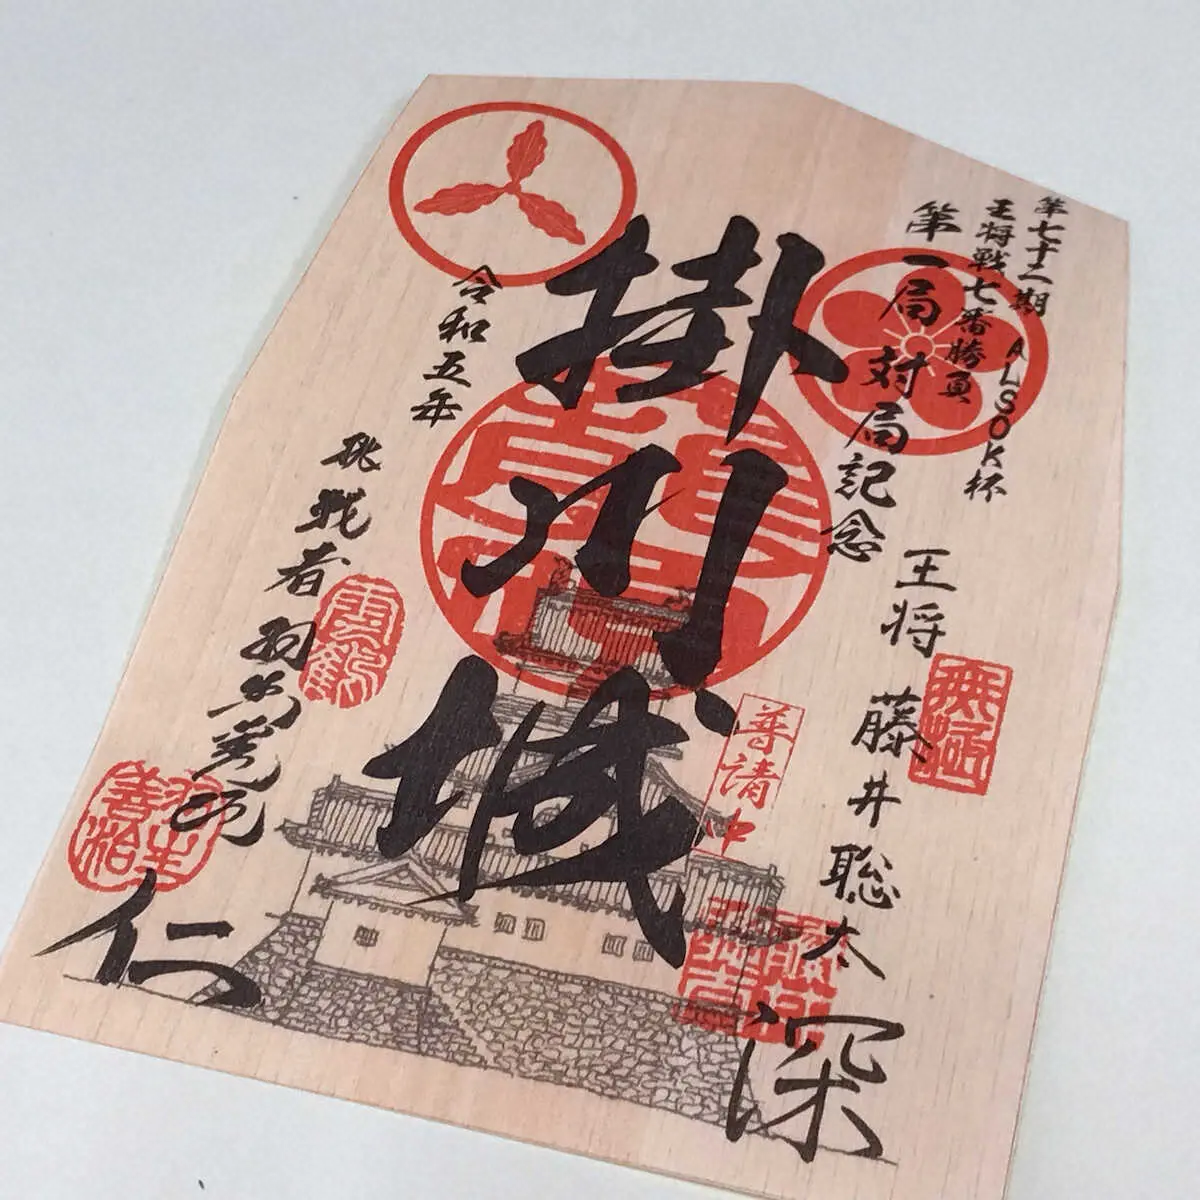 第七十二期 ALSOK杯
王将戦七番勝負
第一局対局記念
王将 藤井聡太
無極
深
掛川城
普請中
令和五年
挑戦者 羽生善治
雲鶴
羽生善治
仁